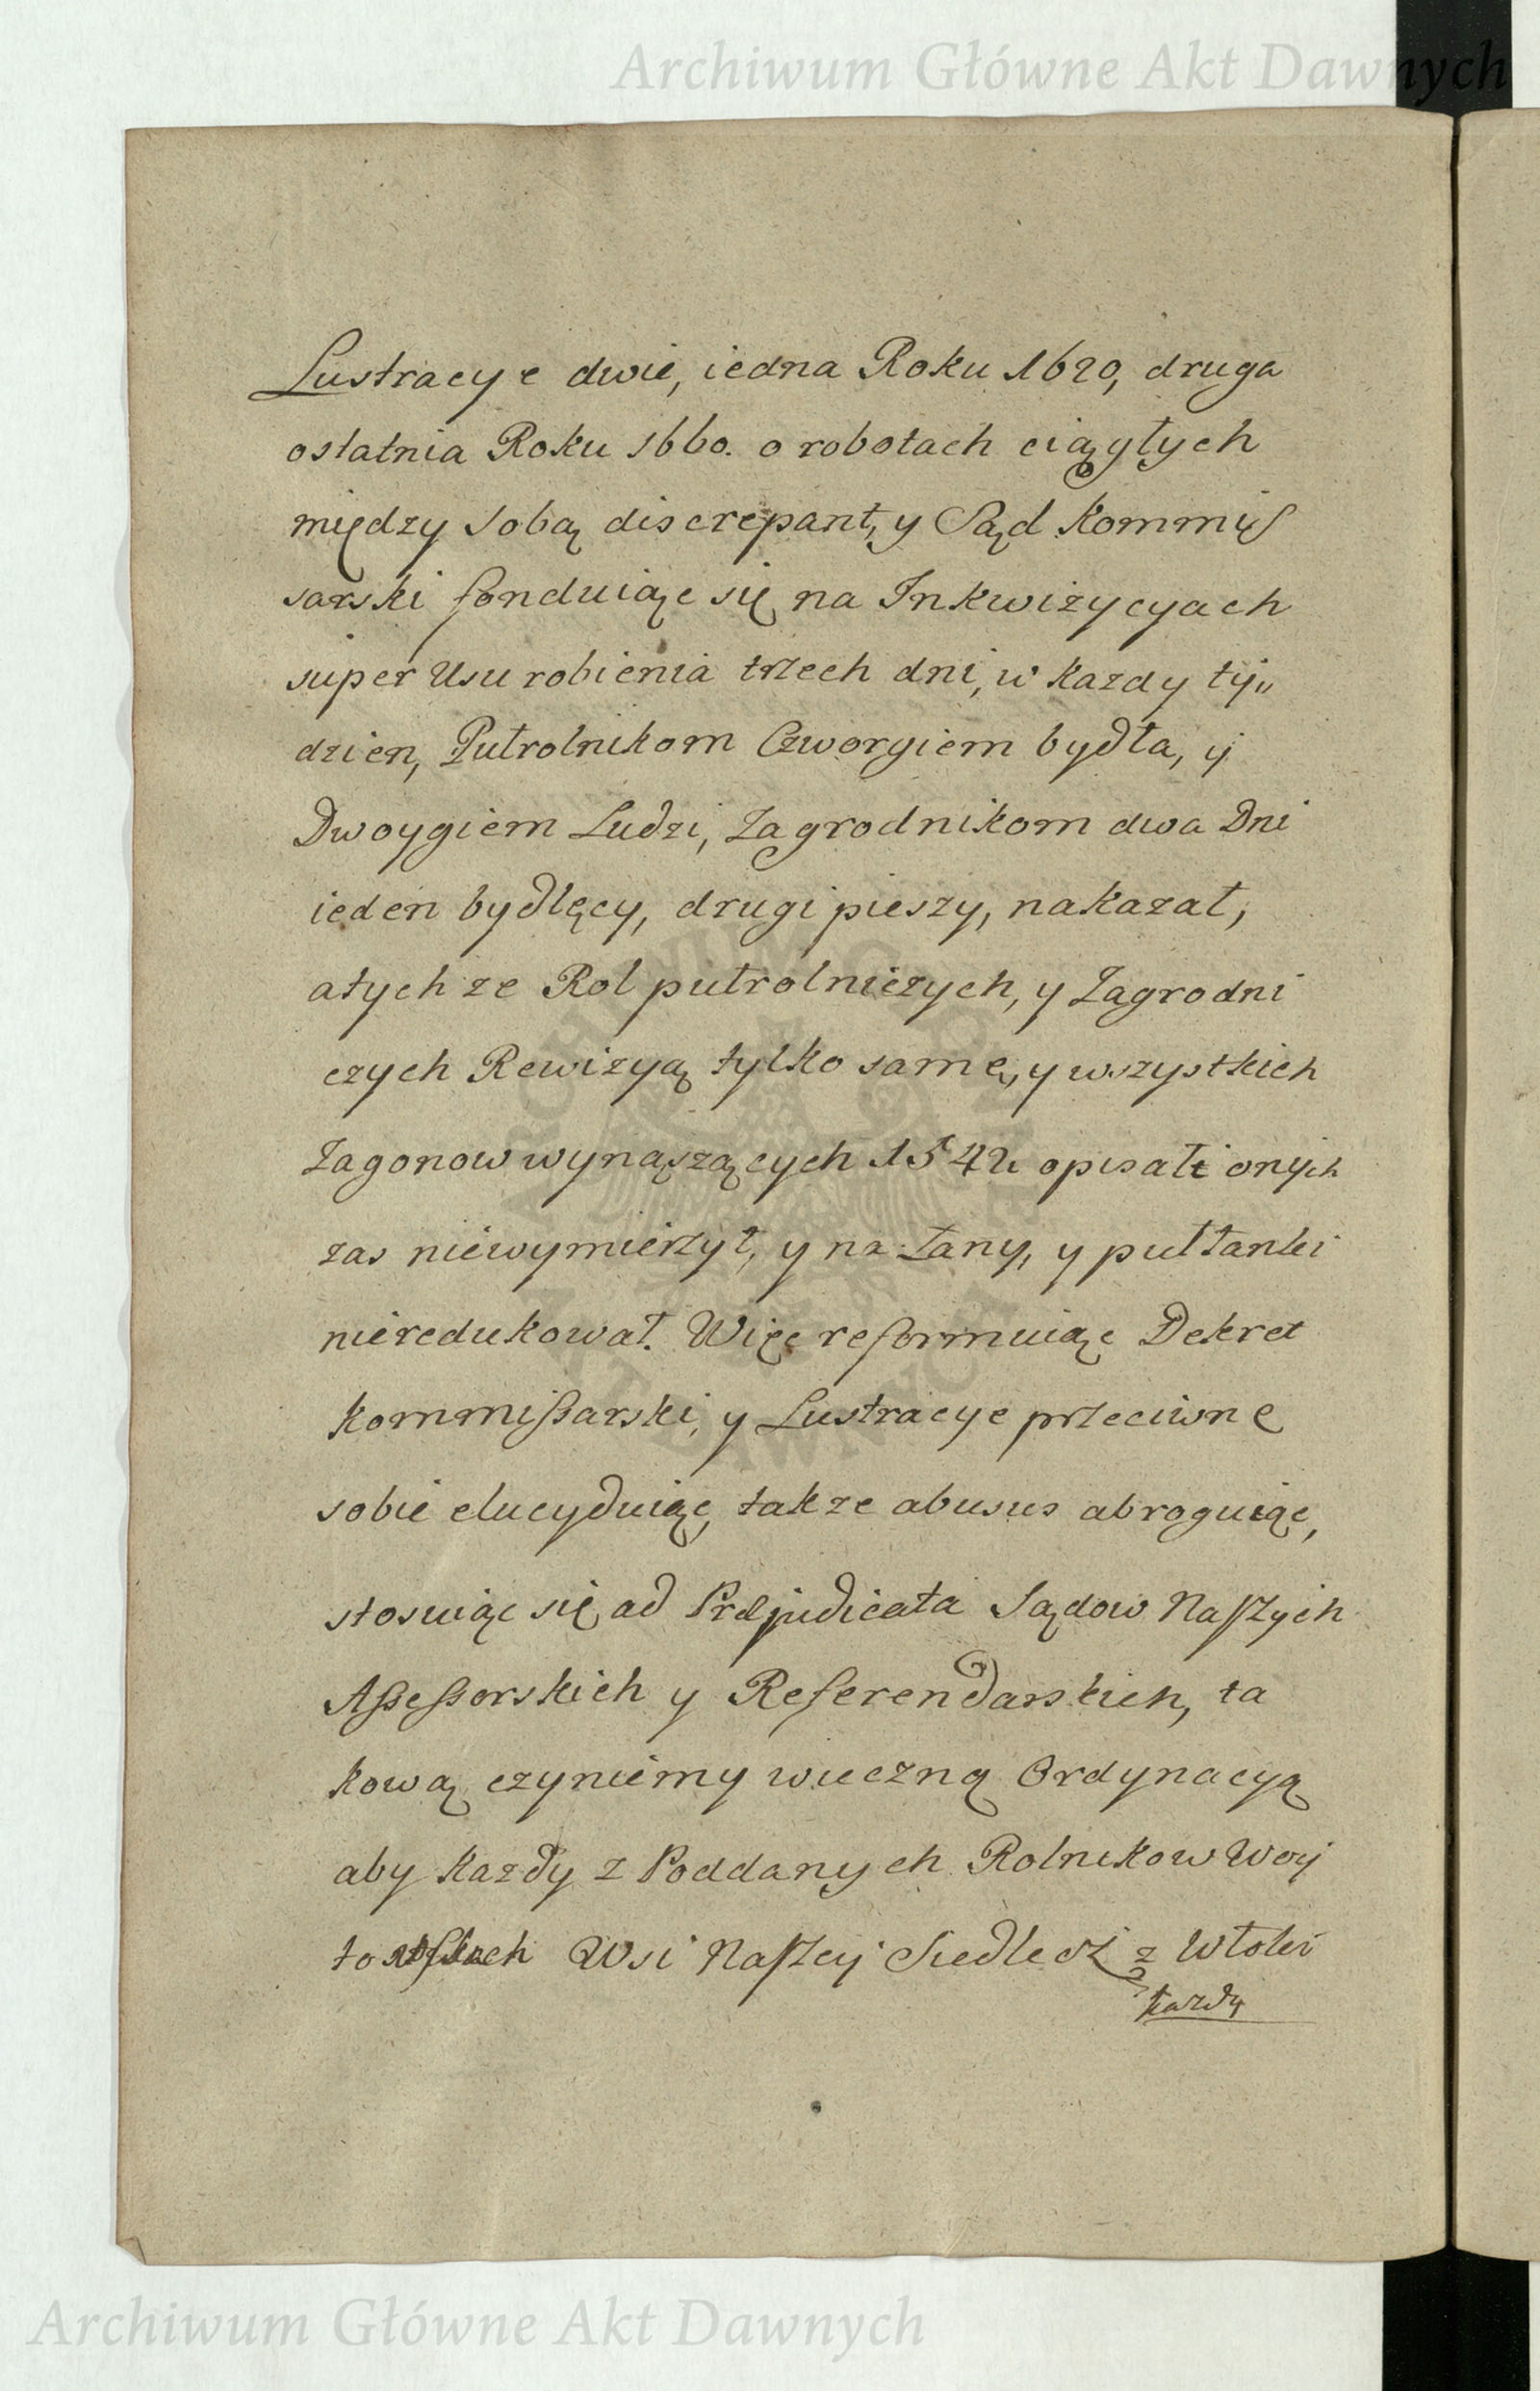 Archiwum Główne Akt Dawnych
Lustracye dwie, iedna Roku 1620, druga
ostatnia Roku 1660. o robotach ciągłych
między sobą discrepant, y Sąd Kommis
sarski fonduiąc się na Inkwizycyach
super Usu robienia trzech dni, w kazdy ty„
dzien, Pułrolnikom Czworgiem bydła, y
Dwoygiem Ludzi, Zagrodnikom dwa Dni
ieden bydlęcy, drugi pieszy, nakazał,
atych ze Rol pułrolniczych, y Zagrodni
czych Rewizyą tylko samę, y wszystkich
Zagonow wynąszących 1542 opisał onych
zas niewymierzył, y na Łany, y pułłanki
nieredukował. Więc reformuiąc Dekret
Kommissarski, y Lustracye przeciwne
sobie elucyduiąc, takze abusus abroguiąc,
stosuiąc się ad Præjudicata Sądow Naszych
Assessorskich y Referendarskich, ta
kową czyniemy wieczną Ordynacyą
aby kazdy z Poddanych Rolnikow Woy
to Wsi Naszey Siedlec z Włoki
kazdy
Archiwum Główne Akt Dawnych